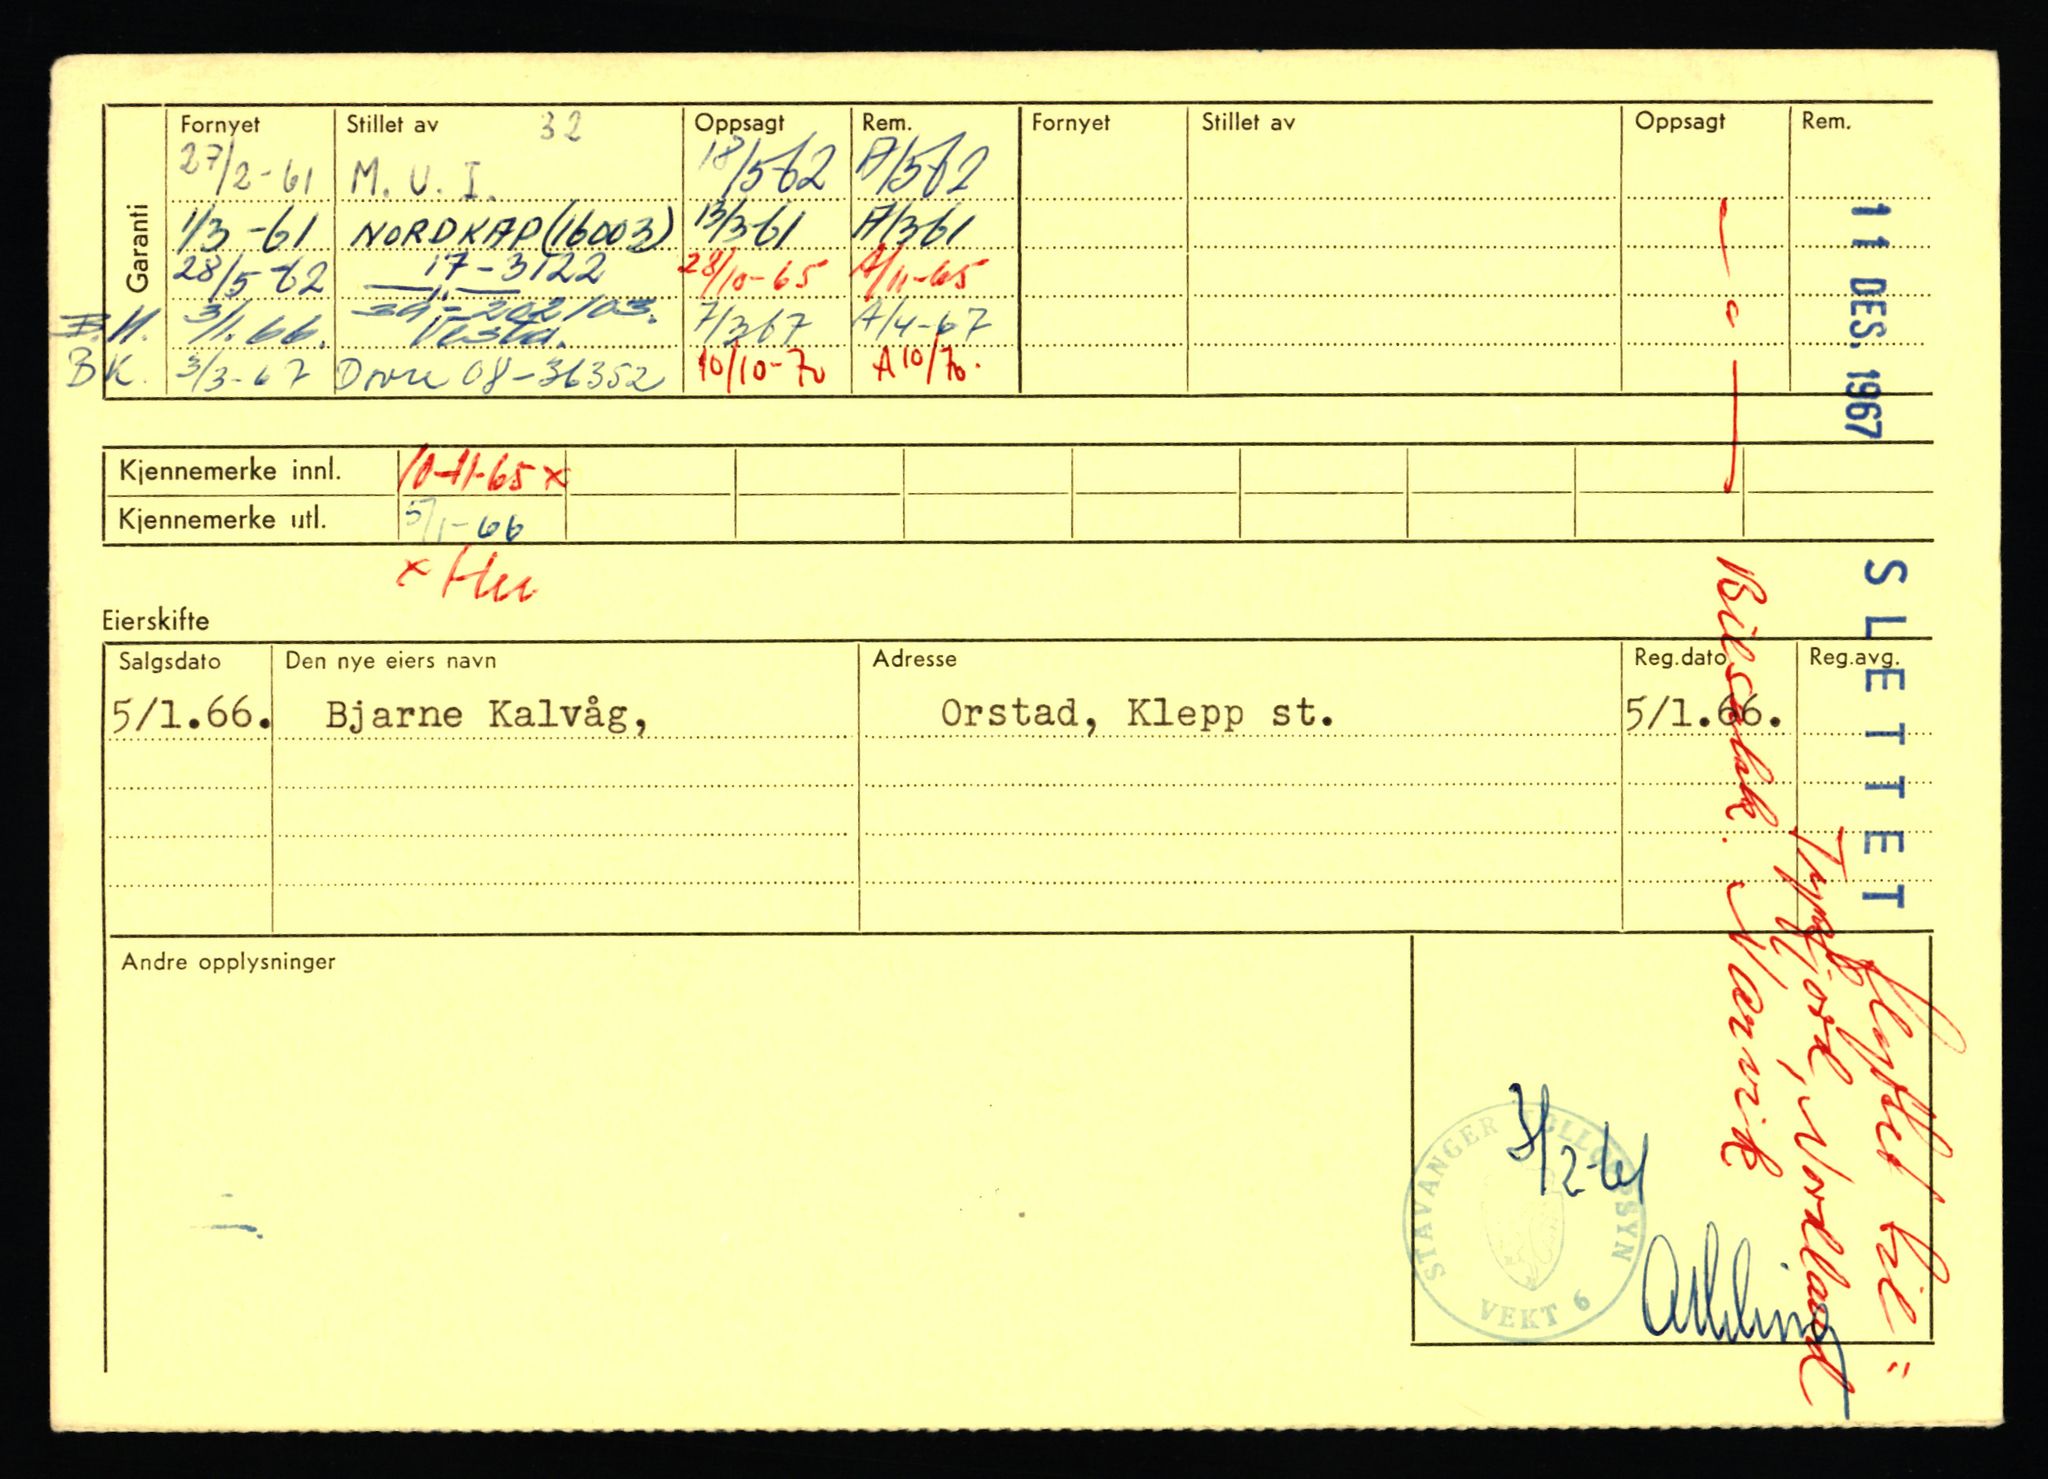 Garanti
Fornyet Stillet av 32 Oppsagt Rem. Fornyet Stillet av Oppsagt Rem.
27/2-61 M. U. I. 18/5-62 A/5-62
1/3-61 NORDKAP (16003) 13/3-61 A/3-61
28/5-62 17-3122 28/10-65 A/11-65
3/1.66. Vesta. 7/3-67 A/4-67
BK. 3/3-67 08-36352 10/10-70 A 10/70.
Kjennemerke innl. 10-11-65 x
Kjennemerke utl. 5/1-66
x
Eierskifte
Salgsdato Den nye eiers navn Adresse Reg.dato Reg.avg.
5/1.66. Bjarne Kalvåg, Orstad, Klepp st. 5/1.66.
Andre opplysninger
STAVANGER BILTILSYN
VEKT 6
11 DES. 1967
SLETTET
Flyttet til
Nordland
Bilsakk. Narvik